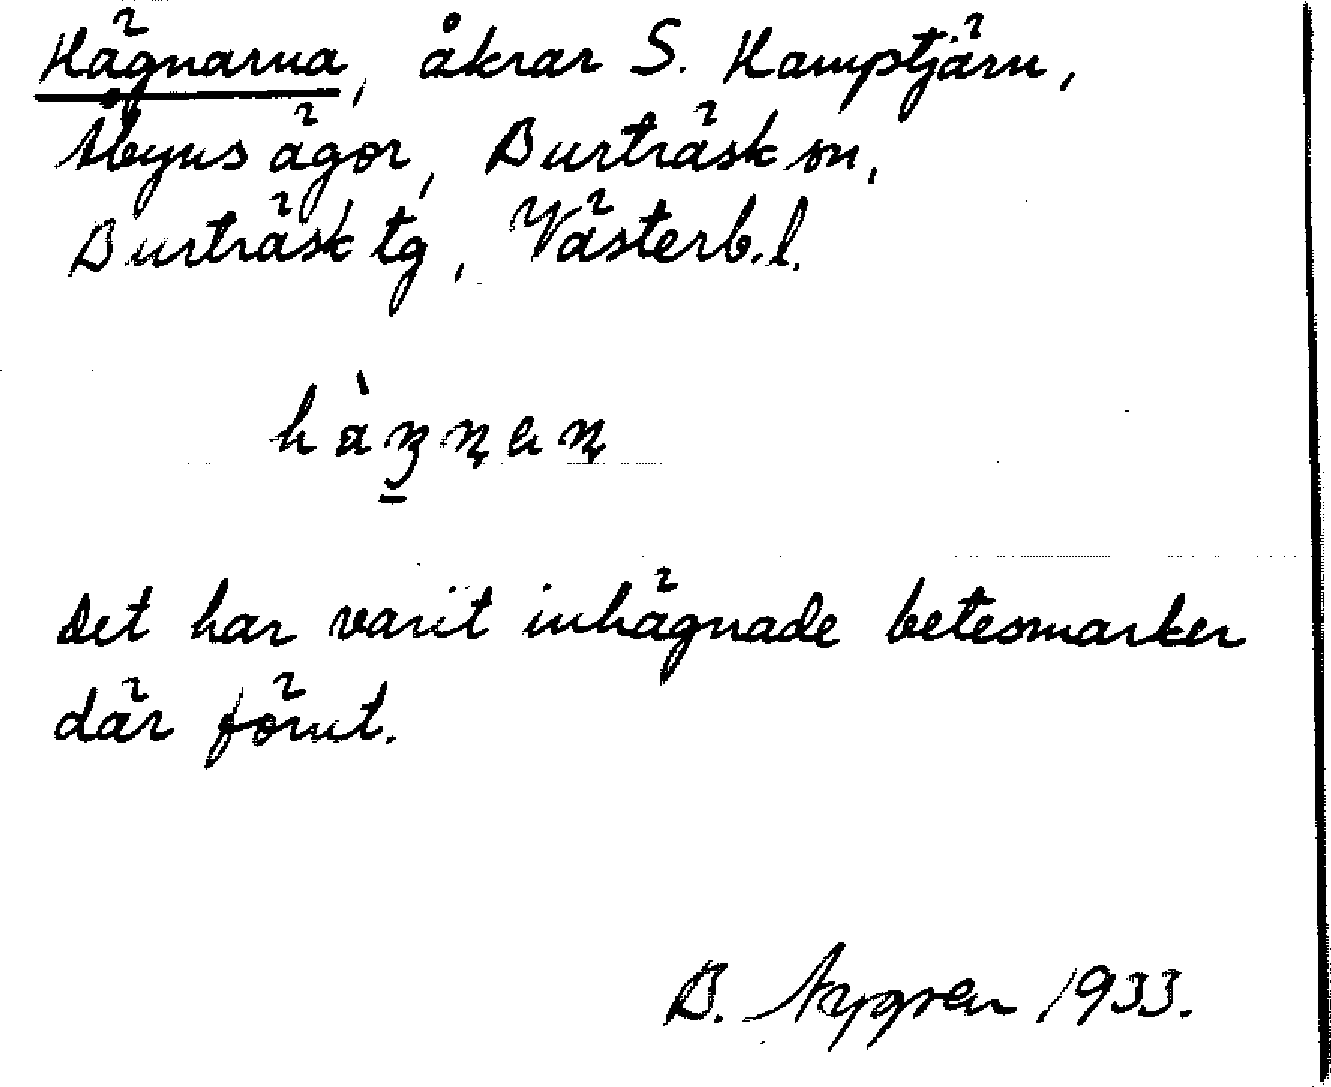 Hägnarna, åkrar S. Kamptjärn,
Åbyns ägor, Burträsk sn,
Burträsk tg, Västerb.l.
hàŋ̱ɳaɳ
Det har varit inhägnade betesmarker
där förut.
B. Nygren 1933.